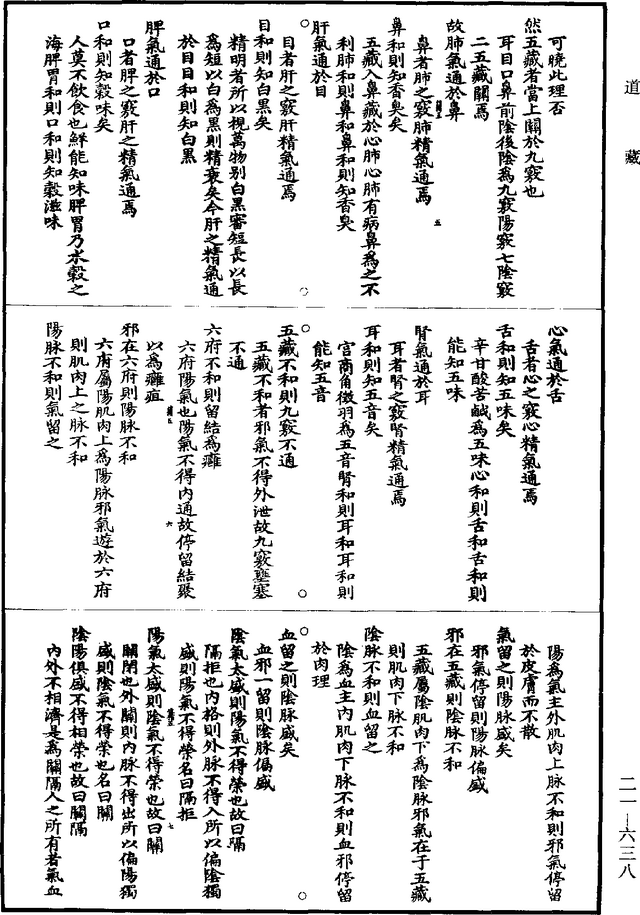 道藏
可曉此理否
然五藏者當上關於九竅也
耳目口鼻前陰後陰為九竅陽竅七陰竅
二五藏關焉
故肺氣通於鼻
鼻者肺之竅肺精氣通焉
鼻和則知香臭矣
五藏入鼻藏於心肺心肺有病鼻為之不
利肺和則鼻和鼻和則知香臭
肝氣通於目
目者肝之竅肝精氣通焉
目和則知白黑矣
精明者所以視萬物別白黑審短長以長
為短以白為黑則精衰矣今肝之精氣通
於目目和則知白黑
脾氣通於口
口者脾之竅肝之精氣通焉
口和則知穀味矣
人莫不飲食也鮮能知味脾胃乃水穀之
海脾胃和則口和則知穀滋味
心氣通於舌
舌者心之竅心精氣通焉
舌和則知五味矣
辛甘酸苦鹹為五味心和則舌和舌和則
能知五味
腎氣通於耳
耳者腎之竅腎精氣通焉
耳和則知五音矣
宮商角徵羽為五音腎和則耳和耳和則
能知五音
五藏不和則九竅不通
五藏不和者邪氣不得外泄故九竅壅塞
不通
六府不和則留結為癰
六府陽氣也陽氣不得內通故停留結聚
以為癰疽
邪在六府則陽脉不和
六府屬陽肌肉上為陽脉邪氣遊於六府
則肌肉上之脉不和
陽脉不和則氣留之
陽為氣主外肌肉上脉不和則邪氣停留
於皮膚而不散
氣留之則陽脉盛矣
邪氣停留則陽脉偏盛
邪在五藏則陰脉不和
五藏屬陰肌肉下為陰脉邪氣在于五藏
則肌肉下脉不和
陰脉不和則血留之
陰為血主內肌肉下脉不和則血邪停留
於肉理
血留之則陰脉盛矣
血邪一留則陰脉偏盛
陰氣太盛則陽氣不得榮也故曰隔
隔拒也內格則外脉不得入所以偏陰獨
盛則陽氣不得榮名曰隔拒
陽氣太盛則陰氣不得榮也故曰關
關閉也外關則內脉不得出所以偏陽獨
盛則陰氣不得榮也名曰關
陰陽俱盛不得相榮也故曰關隔
內外不相濟是為關隔人之所有者氣血
二一—六三八